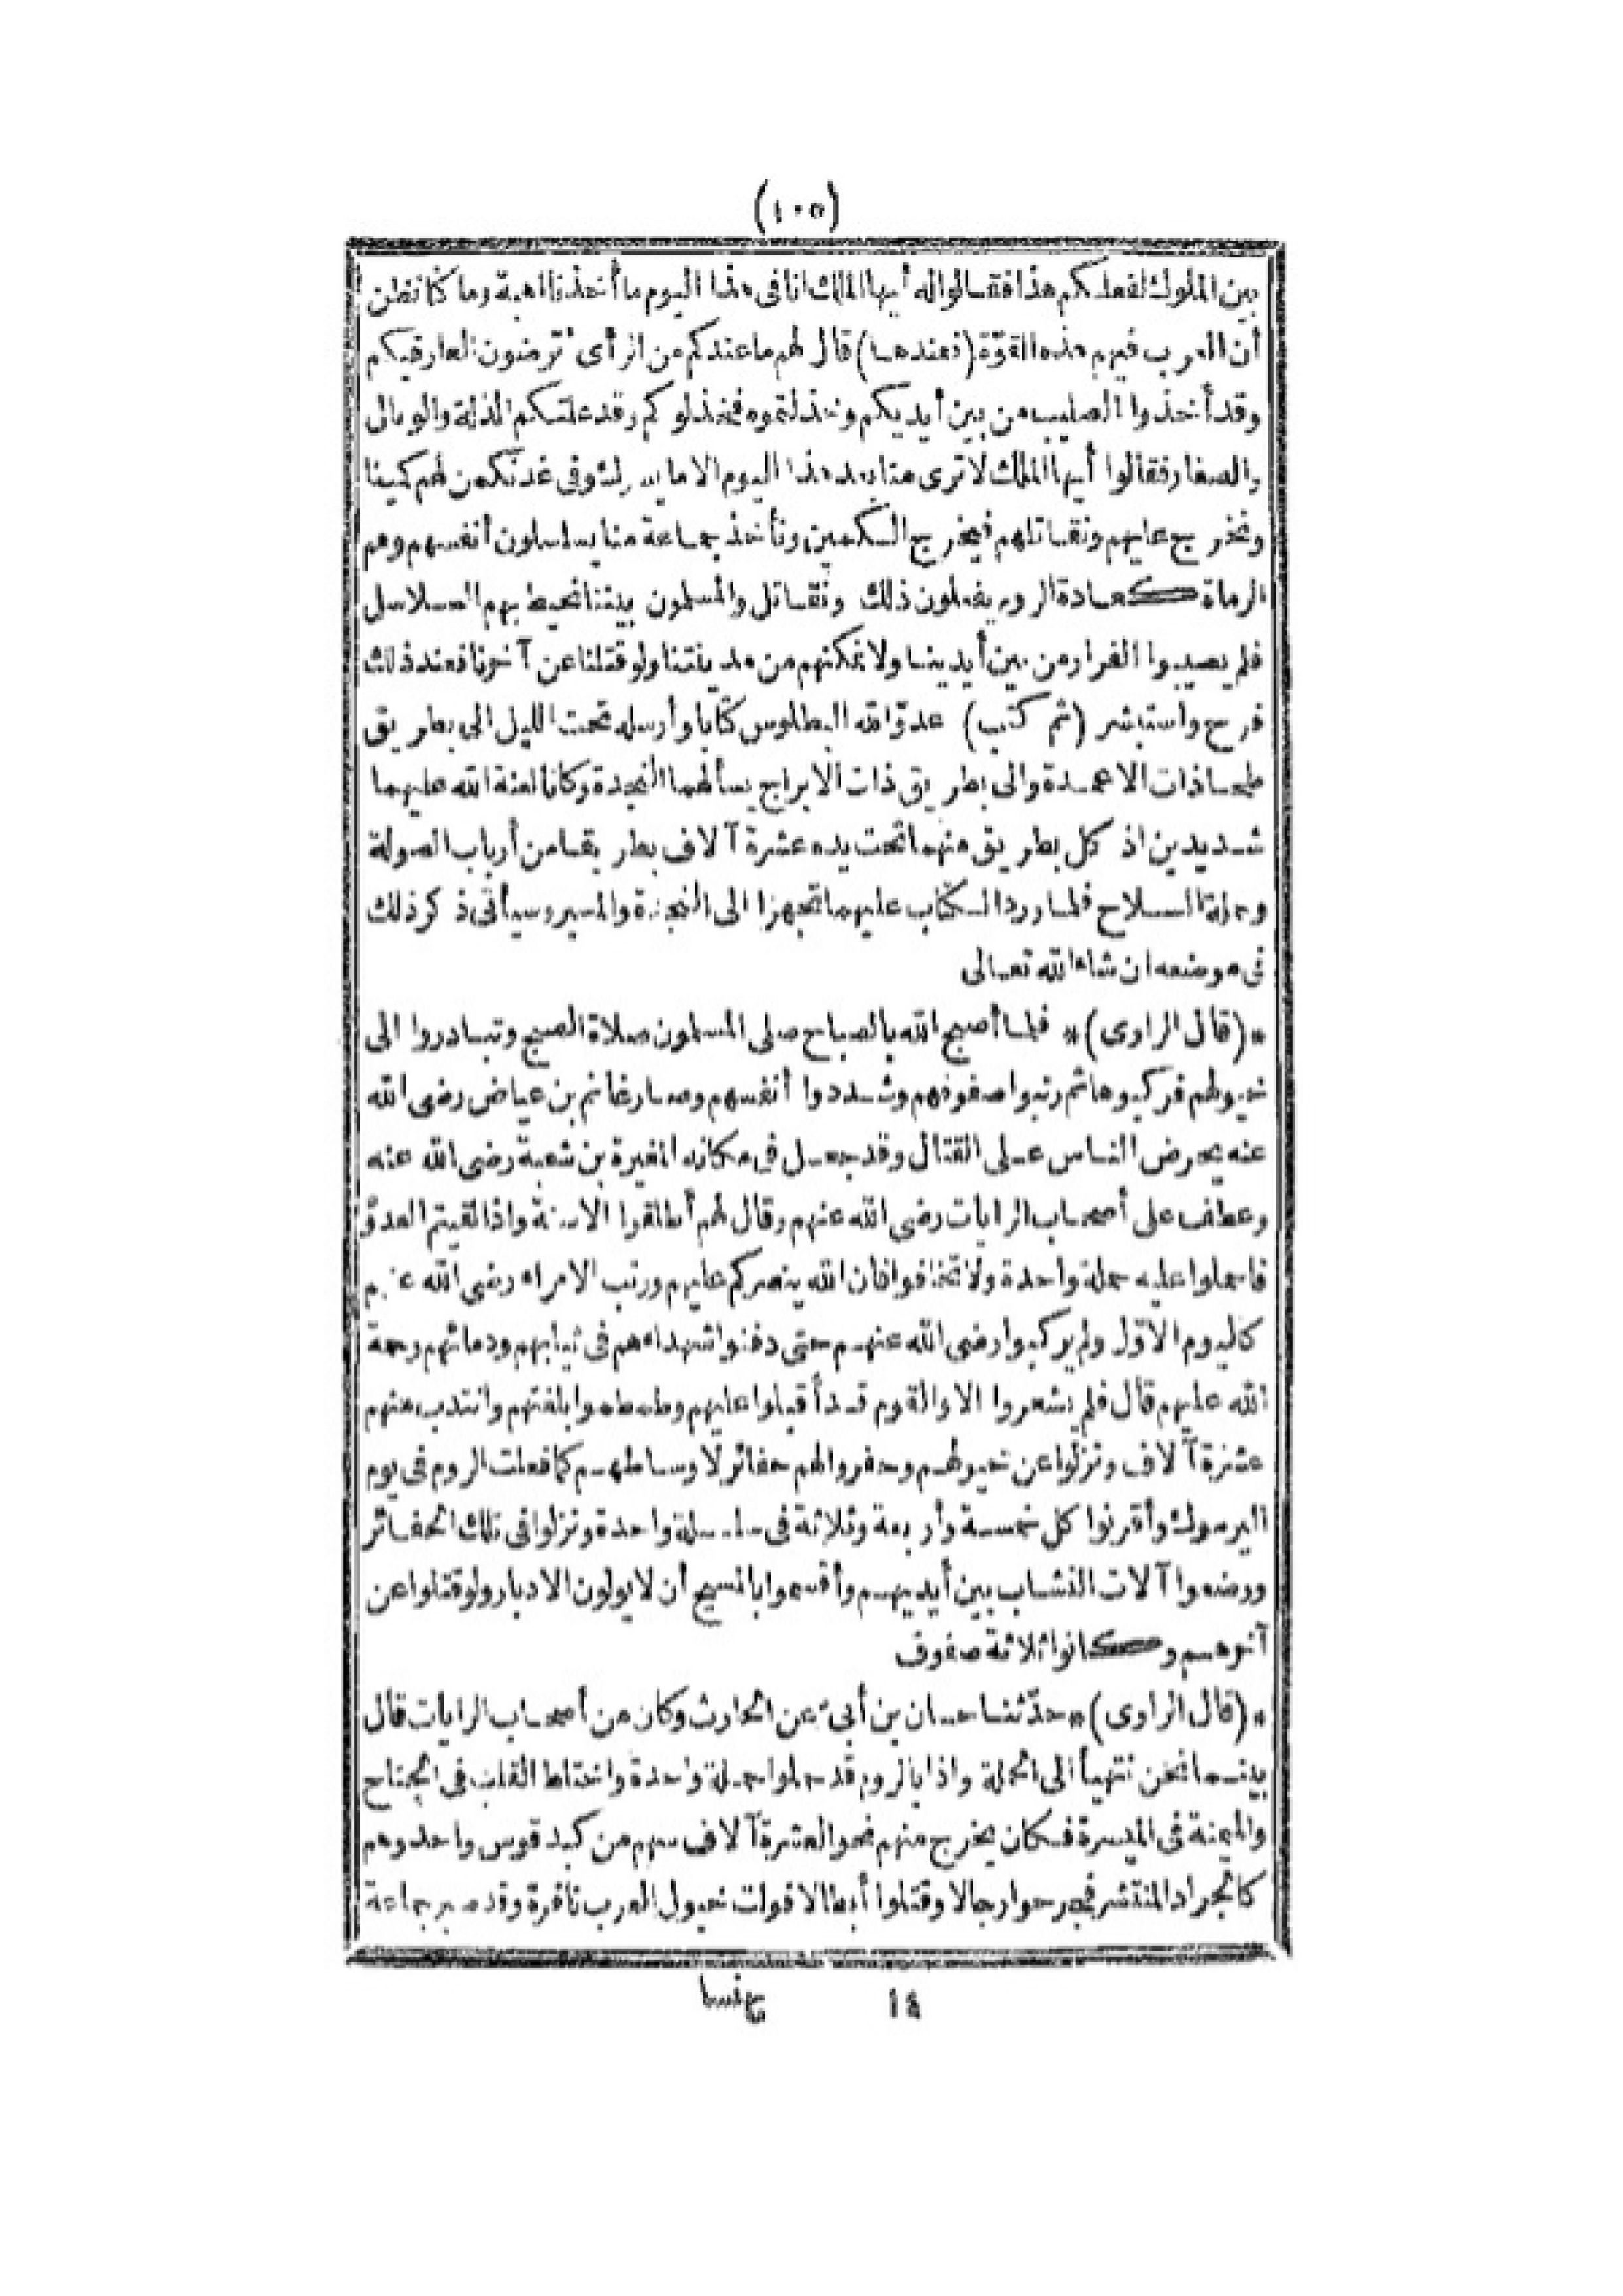 (١٠٥)
بين الملوك لفعلكم هذا فقالوا له أيها الملك انا فى هذا اليوم ما أخذنا اهبة وما كنا نظن
أن العرب فيهم هذه القوّة (فعندها) قال لهم ما عندكم من الرأى أترضون العار فيكم
وقد أخذوا الصليب من بين أيديكم وخذلتموه فيخذلوكم وقد علتكم الذلة والوبال
والصغار فقالوا أيها الملك لا ترى منا بعد هذا اليوم الا ما يسرك وفى غد نكمن لهم كمينا
ونخرج عليهم ونقاتلهم فيخرج الكمين ونأخذ جماعة منا يسلسلون أنفسهم وهم
الرماة كعادة الروم يفعلون ذلك ونقاتل والمسلمون بيننا نحيط بهم السلاسل
فلم يصيبوا الفرار من بين أيدينا ولا نمكنهم من مدينتنا ولو قتلنا عن آخرنا فعند ذلك
فرح واستبشر (ثم كتب) عدوّ الله البطلوس كتابا وأرسله تحت الليل الى بطريق
طحا ذات الاعمدة والى بطريق ذات الابراج يسألهما النجدة وكانا لعنة الله عليهما
شديدين اذ كل بطريق منهما تحت يده عشرة آلاف بطريقا من أرباب الصولة
وحملة السلاح فلما ورد الكتاب عليهما تجهزا الى النجدة والمسير وسيأتى ذكر ذلك
فى موضعه ان شاء الله تعالى
*(قال الراوى)* فلما أصبح الله بالصباح صلى المسلمون صلاة الصبح وتبادروا الى
خيولهم فركبوها ثم رتبوا صفوفهم وشددوا أنفسهم وصار غانم بن عياض رضى الله
عنه يحرض الناس على القتال وقد جعل فى مكانه المغيرة بن شعبة رضى الله عنه
وعطف على أصحاب الرايات رضى الله عنهم وقال لهم أطلقوا الاسنة واذا لقيتم العدوّ
فاحملوا عليه حملة واحدة ولا تخافوا فان الله ينصركم عليهم ورتب الامراء رضى الله عنهم
كاليوم الاوّل ولم يركبوا رضى الله عنهم حتى دفنوا شهداءهم فى ثيابهم ودمائهم رحمة
الله عليهم قال فلم يشعروا الا والقوم قد أقبلوا عليهم وطمطموا بلغتهم وانتدب منهم
عشرة آلاف ونزلوا عن خيولهم وحفروا لهم حفائر لاوساطهم كما فعلت الروم فى يوم
اليرموك وأقرنوا كل خمسة وأربعة وثلاثة فى سلسلة واحدة ونزلوا فى تلك الحفائر
ووضعوا آلات النشاب بين أيديهم وأقسموا بالمسيح أن لا يولون الادبار ولو قتلوا عن
آخرهم وكانوا ثلاثة صفوف
*(قال الراوى)* حدّثنا حسان بن أبى عن الحارث وكان من أصحاب الرايات قال
بينما نحن نتهيأ الى الحملة واذا بالروم قد حملوا حملة واحدة واختلط القلب فى الجناح
والميمنة فى الميسرة فكان يخرج منهم نحو العشرة آلاف سهم من كبد قوس واحد وهم
كالجراد المنتشر فجرحوا رجالا وقتلوا أبطالا فولت خيول العرب نافرة وقد صبر جماعة
١٤ بهنسا